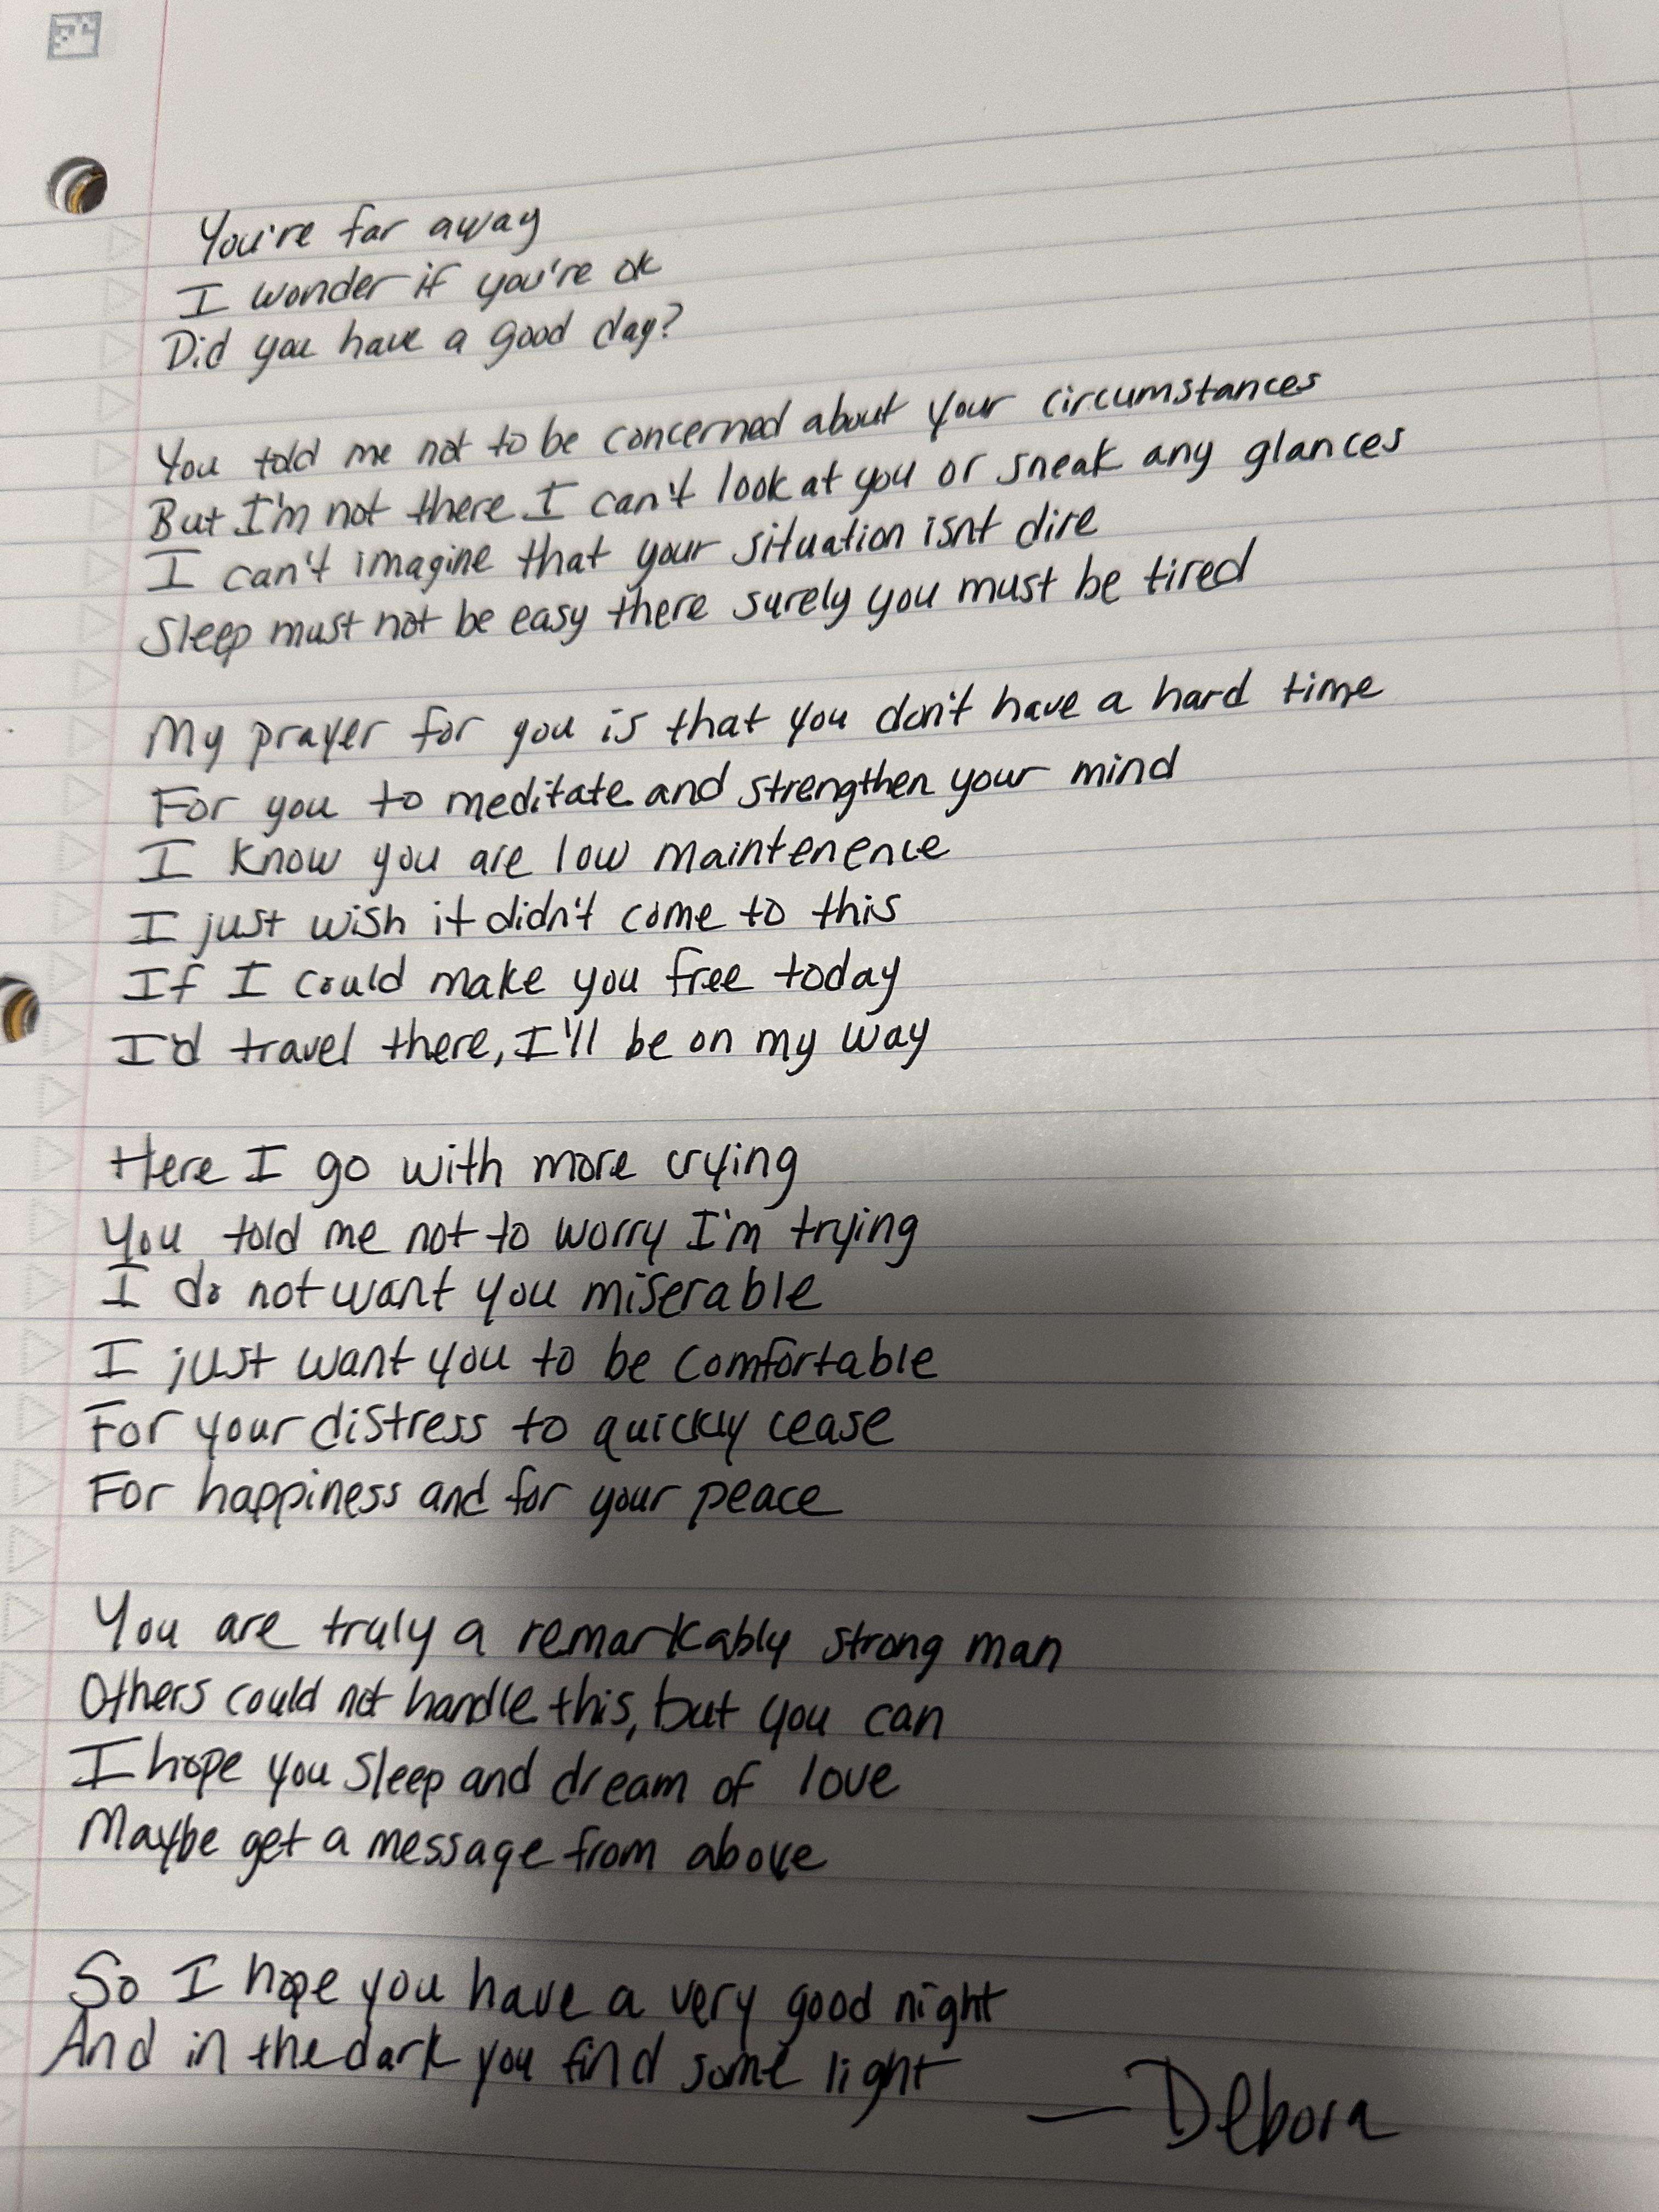 You're far away
I wonder if you're ok
Did you have a good day?
You told me not to be concerned about your circumstances
But I'm not there I can't look at you or sneak any glances
I can't imagine that your situation isnt dire
Sleep must not be easy there surely you must be tired
My prayer for you is that you don't have a hard time
For you to meditate and strengthen your mind
I know you are low maintenence
I just wish it didn't come to this
If I could make you free today
I'd travel there, I'll be on my way
Here I go with more crying
You told me not to worry I'm trying
I do not want you miserable
I just want you to be comfortable
For your distress to quickly cease
For happiness and for your peace
You are truly a remarkably strong man
Others could not handle this, but you can
I hope you sleep and dream of love
Maybe get a message from above
So I hope you have a very good night
And in the dark you find some light
— Debora